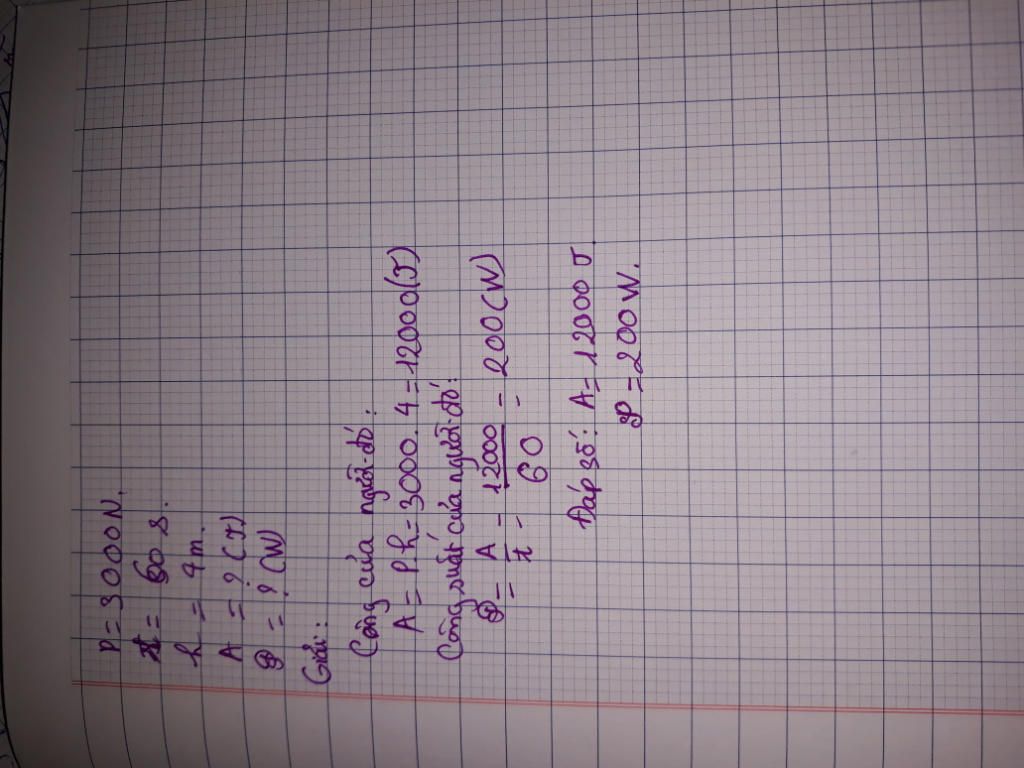 P = 3000N.
t = 60 s.
h = 4m.
A = ? (J)
P = ? (W)
Giải:
Công của người đó:
A = P h = 3000. 4 = 12000 (J)
Công suất của người đó:
P = A/t = 12000/60 = 200 (W)
Đáp số: A = 12000 J.
P = 200 W.